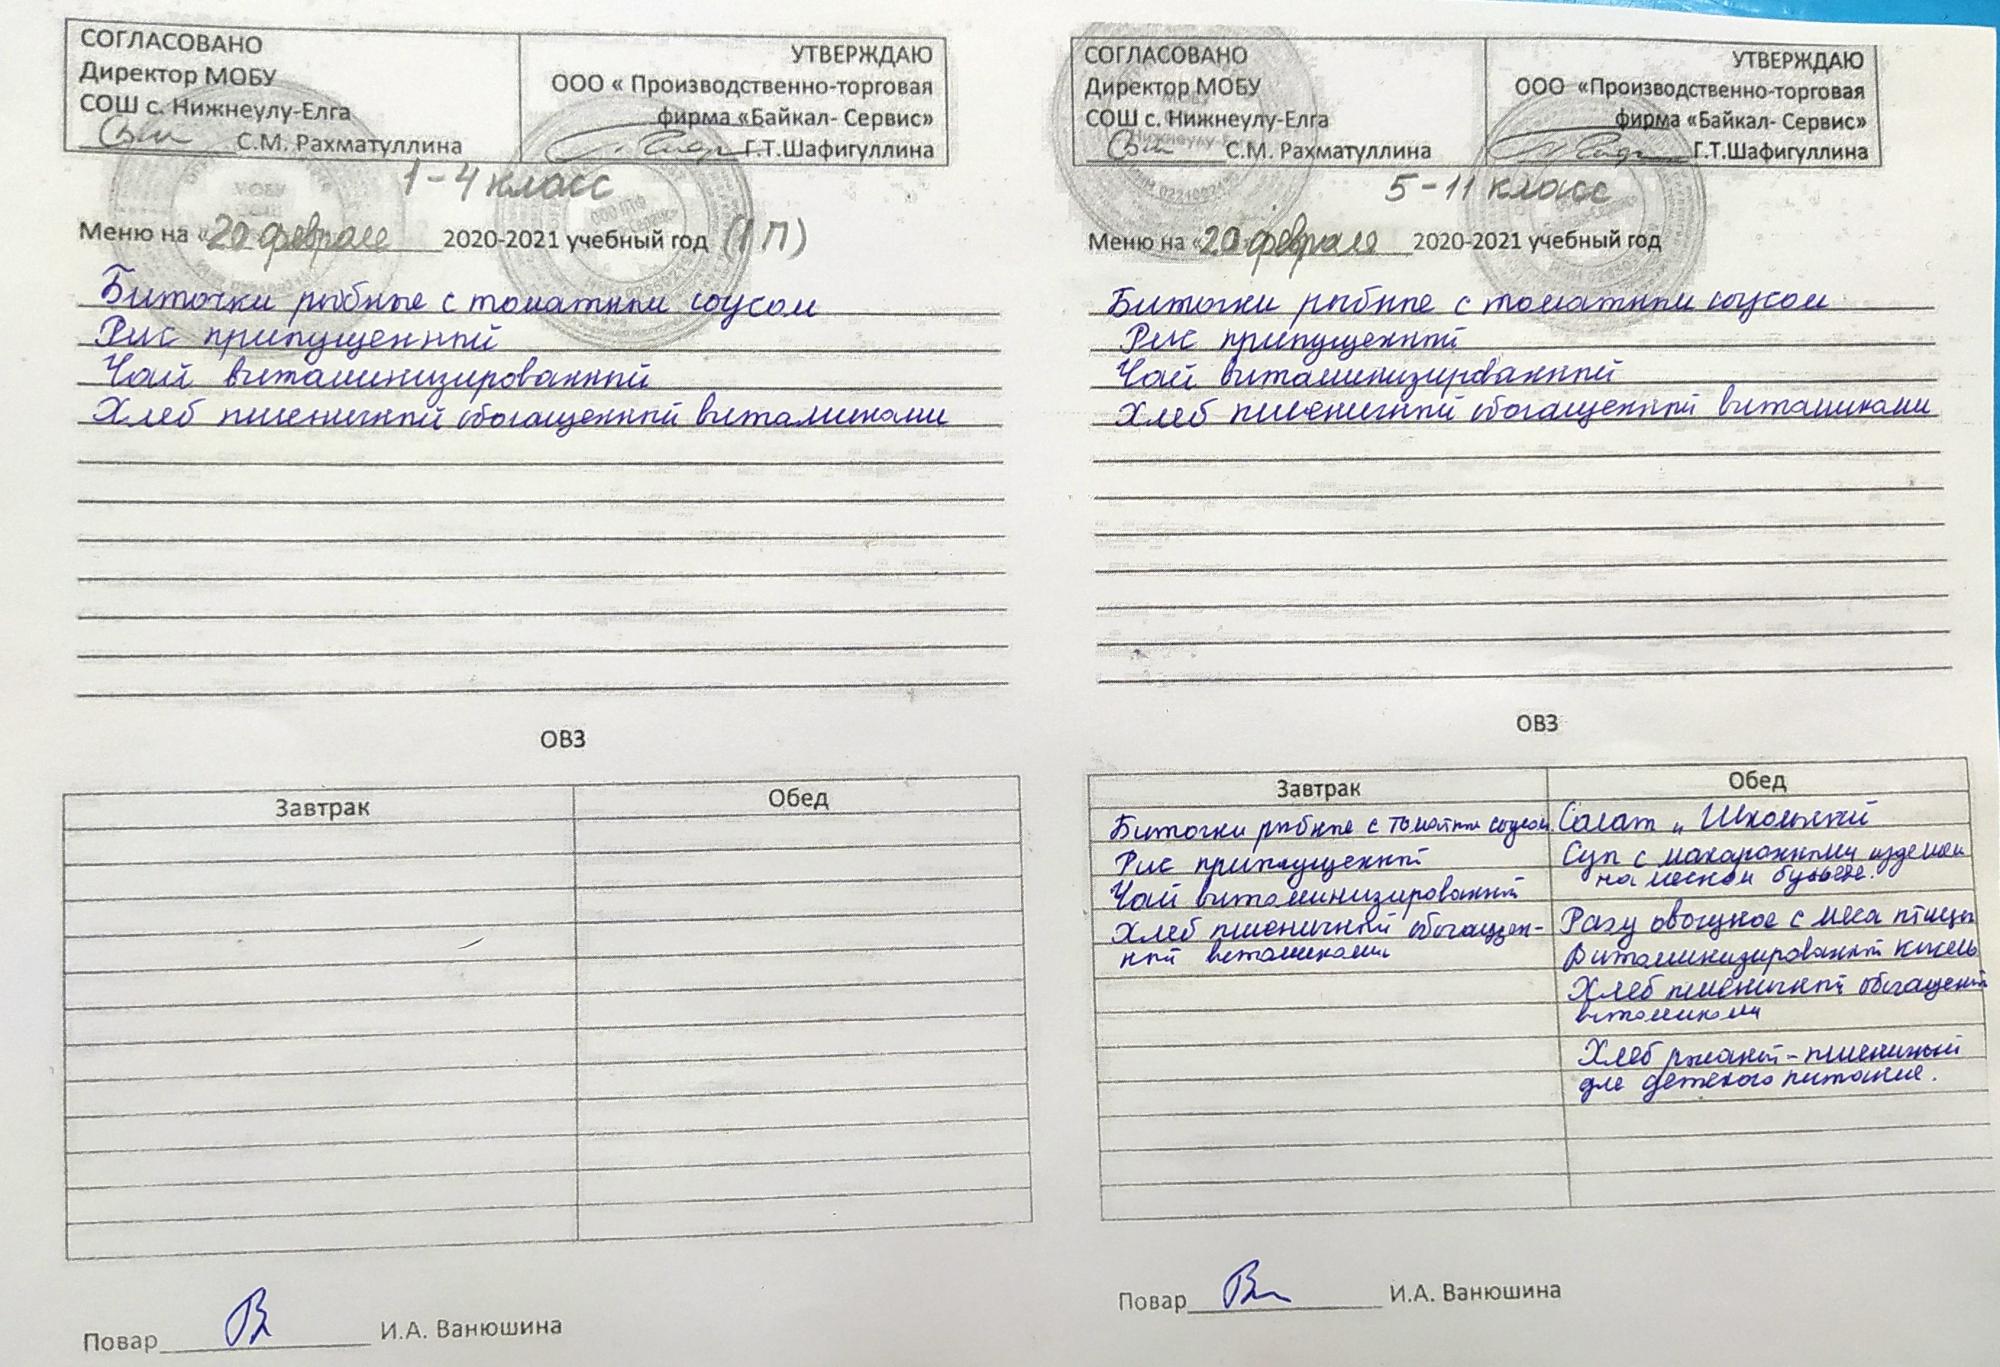 СОГЛАСОВАНО
Директор МОБУ
СОШ с. Нижнеулу-Елга
С.М. Рахматуллина
УТВЕРЖДАЮ
ООО « Производственно-торговая
фирма «Байкал- Сервис»
Г.Т.Шафигуллина
1-4 класс
Меню на «20 февраля 2020-2021 учебный год (1 П)
Биточки рыбные с томатным соусом
Рис припущенный
Чай витаминизированный
Хлеб пшеничный обогащенный витаминами
ОВЗ
Завтрак
Обед
Повар И.А. Ванюшина
СОГЛАСОВАНО
Директор МОБУ
СОШ с. Нижнеулу-Елга
С.М. Рахматуллина
УТВЕРЖДАЮ
ООО «Производственно-торговая
фирма «Байкал- Сервис»
Г.Т.Шафигуллина
5-11 класс
Меню на «20 февраля 2020-2021 учебный год
Биточки рыбные с томатным соусом
Рис припущенный
Чай витаминизированный
Хлеб пшеничный обогащенный витаминами
ОВЗ
Завтрак
Биточки рыбные с томатн соусом.
Рис припущенный
Чай витаминизированный
Хлеб пшеничный обогащен-
ный витаминами
Обед
Салат „ Школьный
Суп с макаронными издел
на мясном бульоне.
Рагу овощное с мяса птицы
Витаминизированный кисель
Хлеб пшеничный обогащенный
витаминами
Хлеб ржаной-пшеничный
для детского питания.
Повар И.А. Ванюшина